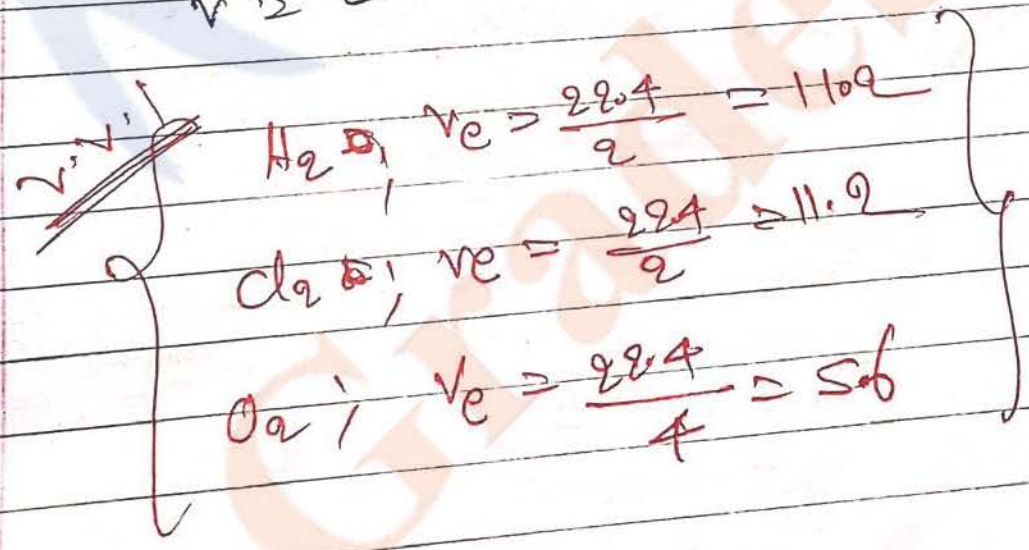 V.V.
H2; Ve = 22.4/2 = 11.2
Cl2; Ve = 22.4/2 = 11.2
O2; Ve = 22.4/4 = 5.6
Grade